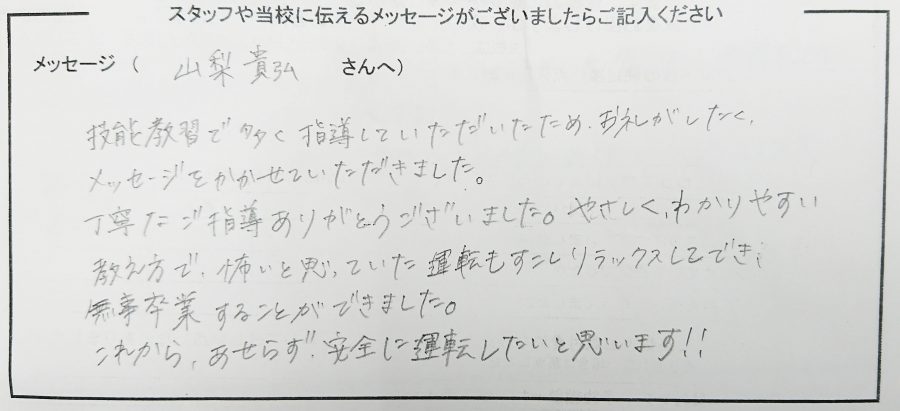 スタッフや当校に伝えるメッセージがございましたらご記入ください
メッセージ ( 山梨 貴弘 さんへ)
技能教習で多く指導していただいたため、お礼がしたく、
メッセージをかかせていただきました。
丁寧なご指導ありがとうございました。やさしく、わかりやすい
教え方で、怖いと思っていた運転もすこしリラックスしてでき、
無事卒業することができました。
これから、あせらず、安全に運転したいと思います!!